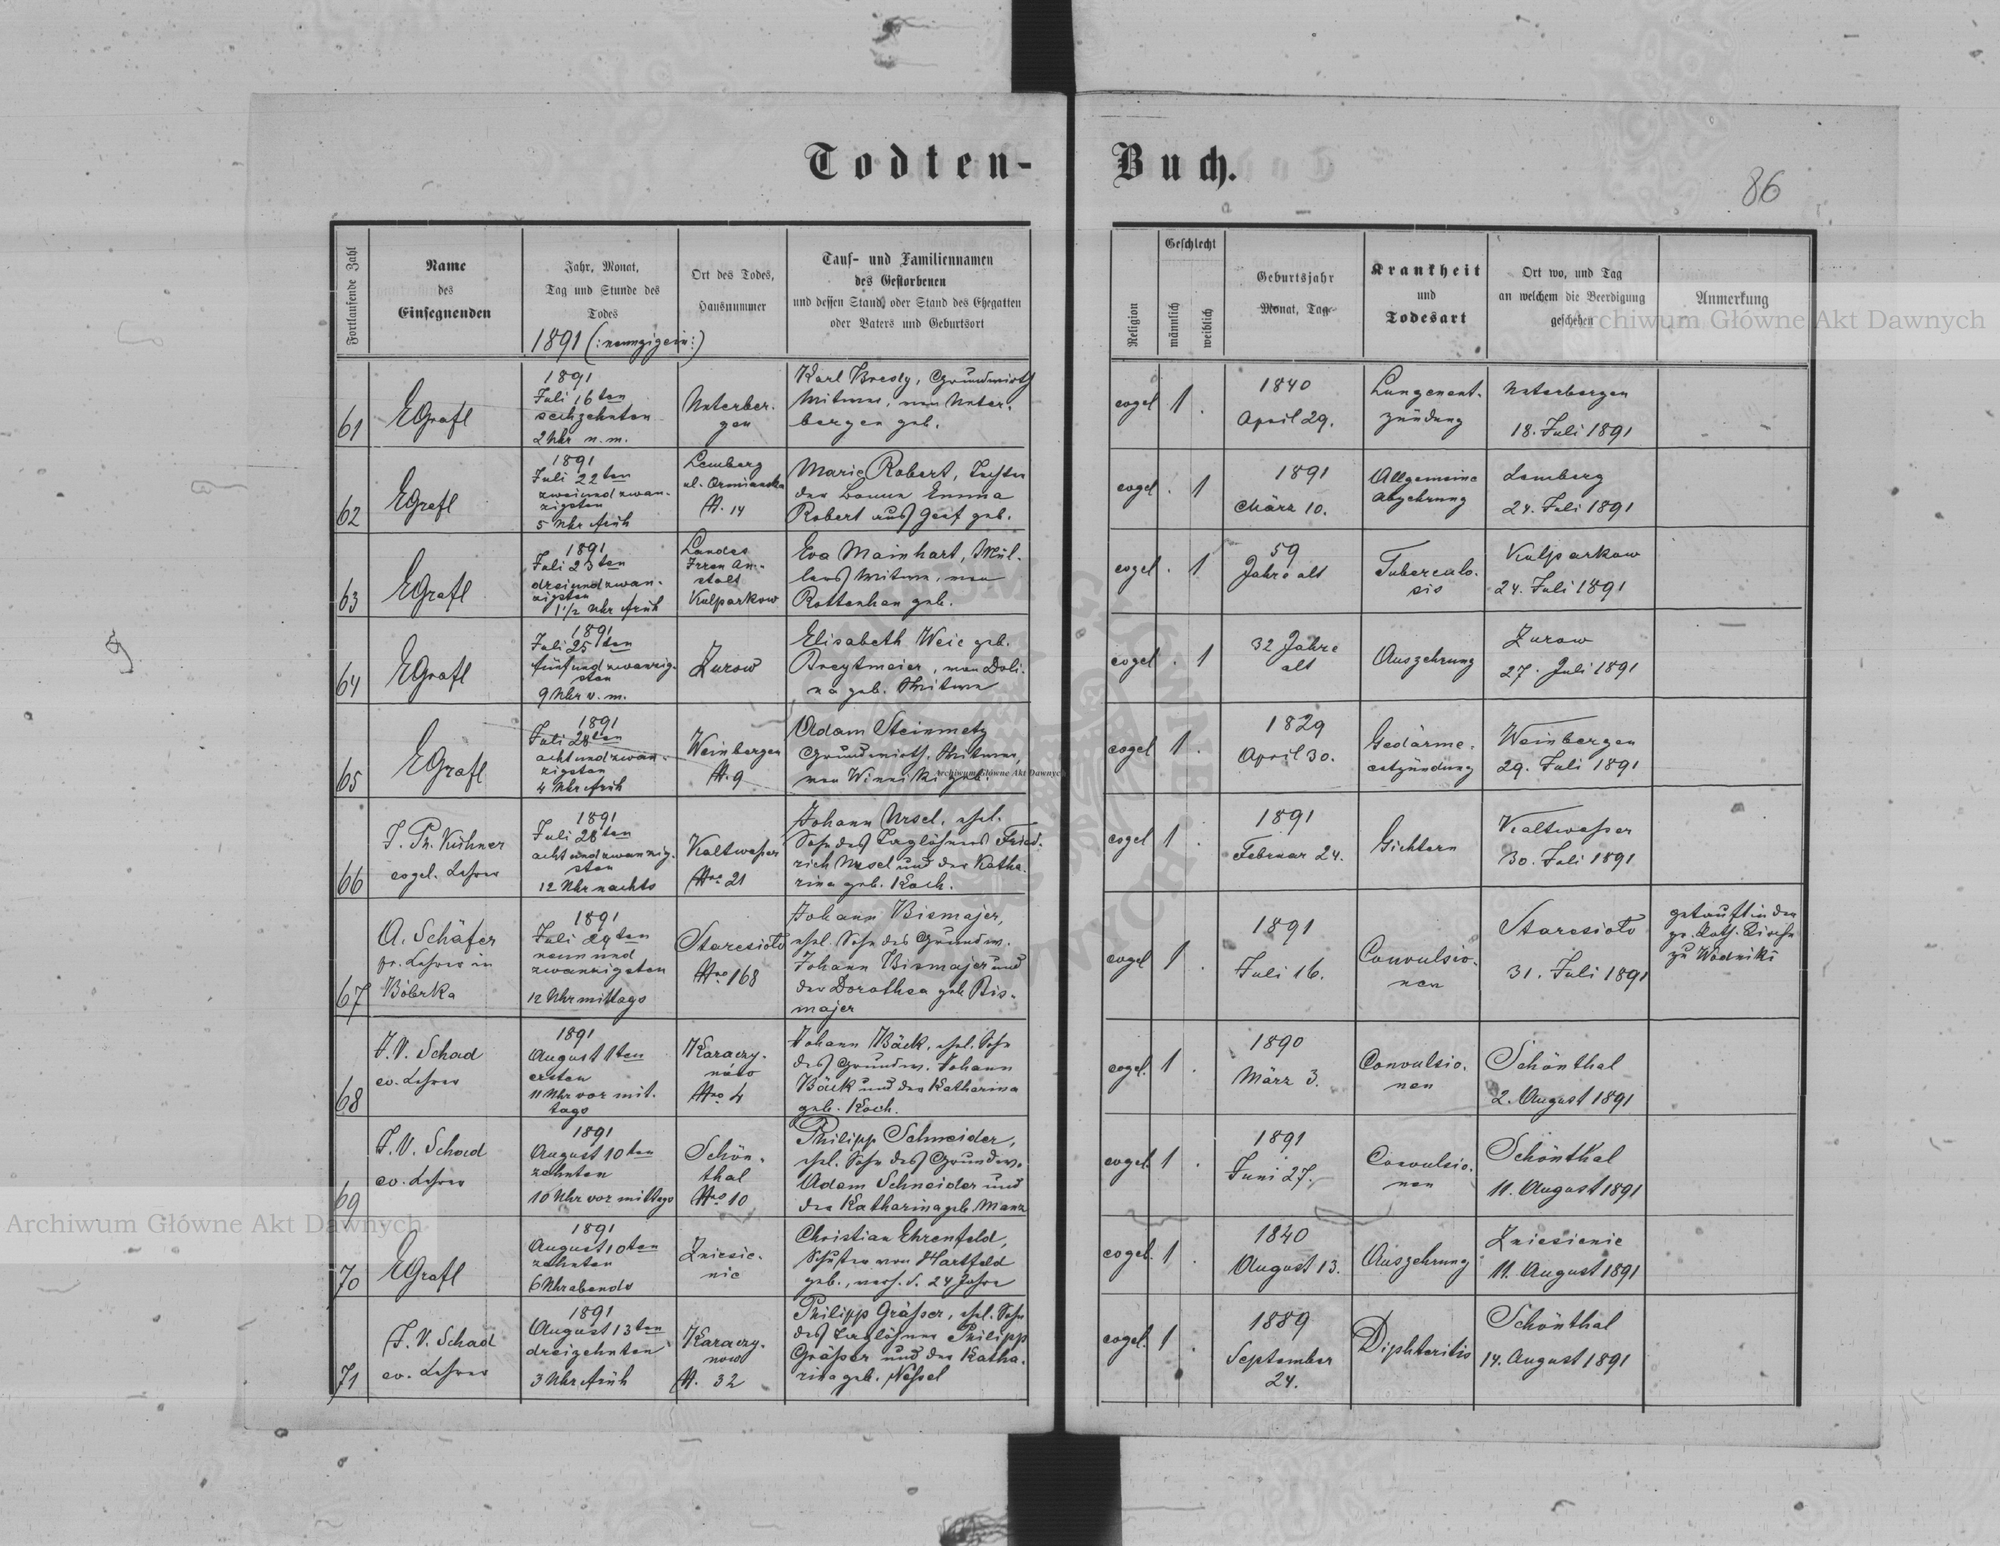 Todten-Buch.
86
Fortlaufende Zahl
Name
des
Einsegnenden
Jahr, Monat,
Tag und Stunde des
Todes
1891 (:neunzigein:)
Ort des Todes,
Hausnummer
Tauf- und Familiennamen
des Gestorbenen
und dessen Stand, oder Stand des Ehegatten
oder Vaters und Geburtsort
Religion
Geschlecht
männlich
weiblich
Geburtsjahr
Monat, Tag
Krankheit
und
Todesart
Ort wo, und Tag
an welchem die Beerdigung
geschehen
Anmerkung
61
EGrafl
1891
Juli 16ten
sechzehnten
2 Uhr n. m.
Unterber-
gen
Karl Bredy, Grundwirth
Witwer, von Unter-
bergen geb.
evgel
1 .
1840
April 29.
Lungenent-
zündung
Unterbergen
18. Juli 1891
62
EGrafl
1891
Juli 22ten
zweiundzwan-
zigsten
5 Uhr früh
Lemberg
ul. Ormianska
N. 14
Marie Robert, Tochter
der Bonne Emma
Robert aus Genf geb.
evgel
. 1
1891
März 10.
Allgemeine
Abzehrung
Lemberg
24. Juli 1891
63
EGrafl
1891
Juli 23ten
dreiundzwan-
zigsten
1 1/2 Uhr früh
Landes
Irren An-
stalt
Kulparkow
Eva Mainhart, Mül-
lers Witwe, von
Rottenhan geb.
evgel
. 1
59
Jahre alt
Tuberculo-
sis
Kulparkow
24. Juli 1891
64
EGrafl
1891
Juli 25ten
fünfundzwanzig-
sten
9 Uhr v. m.
Zurow
Elisabeth Weic geb.
Breytmeier, von Doli-
na geb. Witwe
evgel
. 1
32 Jahre
alt
Auszehrung
Zurow
27. Juli 1891
65
EGrafl
1891
Juli 28ten
achtundzwan-
zigsten
4 Uhr früh
Weinbergen
N. 9
Adam Steinmetz
Grundwirth, Witwer,
von Winniki geb.
evgel
1 .
1829
April 30.
Gedärme-
entzündung
Weinbergen
29. Juli 1891
66
J. Ph. Kühner
evgel. Lehrer
1891
Juli 28ten
achtundzwanzig-
sten
12 Uhr nachts
Kaltwasser
Nro 21
Johann Ursel, ehel.
Sohn des Taglöhners Fried-
rich Ursel und der Katha-
rina geb. Koch.
evgel
1 .
1891
Februar 24.
Gichtern
Kaltwasser
30. Juli 1891
67
A. Schäfer
pr. Lehrer in
Bóbrka
1891
Juli 29ten
neunund
zwanzigsten
12 Uhr mittags
Staresioło
Nro 168
Johann Bismajer,
ehel. Sohn des Grundw.
Johann Bismajer und
der Dorothea geb Bis-
majer
evgel
1 .
1891
Juli 16.
Convulsio-
nen
Staresioło
31. Juli 1891
getauft in der
gr. kath. Kirche
zu Wodniki
68
J. V. Schad
ev. Lehrer
1891
August 1ten
ersten
11 Uhr vor mit-
tags
Karaczy-
nów
Nro 4
Johann Bäck, ehel. Sohn
des Grundw. Johann
Bäck und der Katharina
geb. Koch.
evgel.
1 .
1890
März 3.
Convulsio-
nen
Schönthal
2. August 1891
69
J. V. Schad
ev. Lehrer
1891
August 10ten
zehnten
10 Uhr vor mittags
Schön-
thal
Nro 10
Philipp Schneider,
ehel. Sohn des Grundw.
Adam Schneider und
der Katharina geb. Manz
evgel.
1 .
1891
Juni 27.
Convulsio-
nen
Schönthal
11. August 1891
70
EGrafl
1891
August 10ten
zehnten
6 Uhr abends
Zniesie-
nie
Christian Ehrenfeld,
Schuster von Hartfeld
geb., verh. s. 24 Jahre
evgel.
1 .
1840
August 13.
Auszehrung
Zniesienie
11. August 1891
71
J. V. Schad
ev. Lehrer
1891
August 13ten
dreizehnten
3 Uhr früh
Karaczy-
now
N. 32
Philipp Grässer, ehel. Sohn
des Taglöhner Philipp
Grässer und der Katha-
rina geb. Nessel
evgel.
1 .
1889
September
24.
Diphteritis
Schönthal
14. August 1891
Archiwum Główne Akt Dawnych
Archiwum Główne Akt Dawnych
Archiwum Główne Akt Dawnych